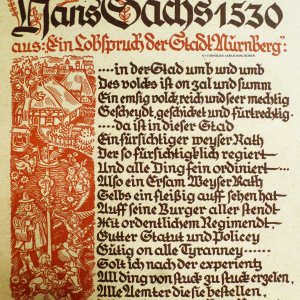 Hans Sachs 1530
aus: „Ein Lobspruch der Stadt Nürnberg“:
....in der Stad umb und umb
Des volckes ist on zal und summ
Ein emsig volck, reich und seer mechtig
Gescheydt, geschicket und fürtrechtig.
....da ist in dieser Stad
Ein fürsichtiger weyser Rath
Der so fürsichtigklich regiert
Und alle Ding fein ordiniert
Also ein Ersam Weyser Rath
Selbs ein fleißig auff sehen hat
Auff seine Burger aller stendt
Mit ordentlichem Regimendt
Gutter Statut und Policey
Gütig on alle Tyranney
Solt ich nach der experientz
All ding von stuck zu stuck erzelen,
Alle Aemter die sie bestellen,